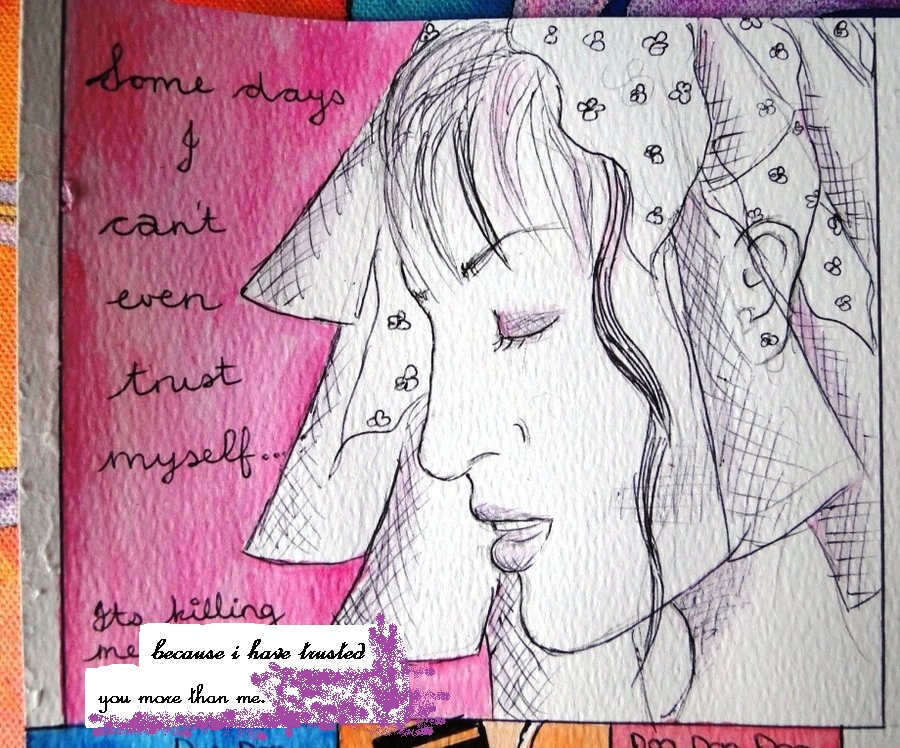 Some days
I
can't
even
trust
myself...
Its killing
me
because i have trusted
you more than me.